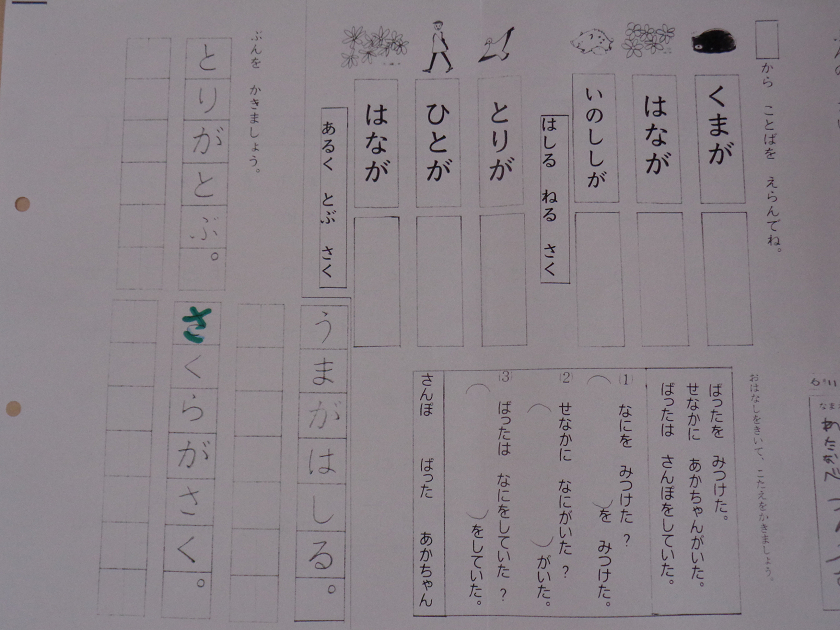 から ことばを えらんでね。
くまが
はなが
いのししが
はしる ねる さく
とりが
ひとが
はなが
あるく とぶ さく
ぶんを かきましょう。
とりがとぶ。
おはなしをきいて、こたえをかきましょう。
ばったを みつけた。
せなかに あかちゃんがいた。
ばったは さんぽをしていた。
(1) なにを みつけた ?
( )を みつけた。
(2) せなかに なにがいた ?
( )がいた。
(3) ばったは なにをしていた ?
( )をしていた。
さんぽ ばった あかちゃん
うまがはしる。
さくらがさく。